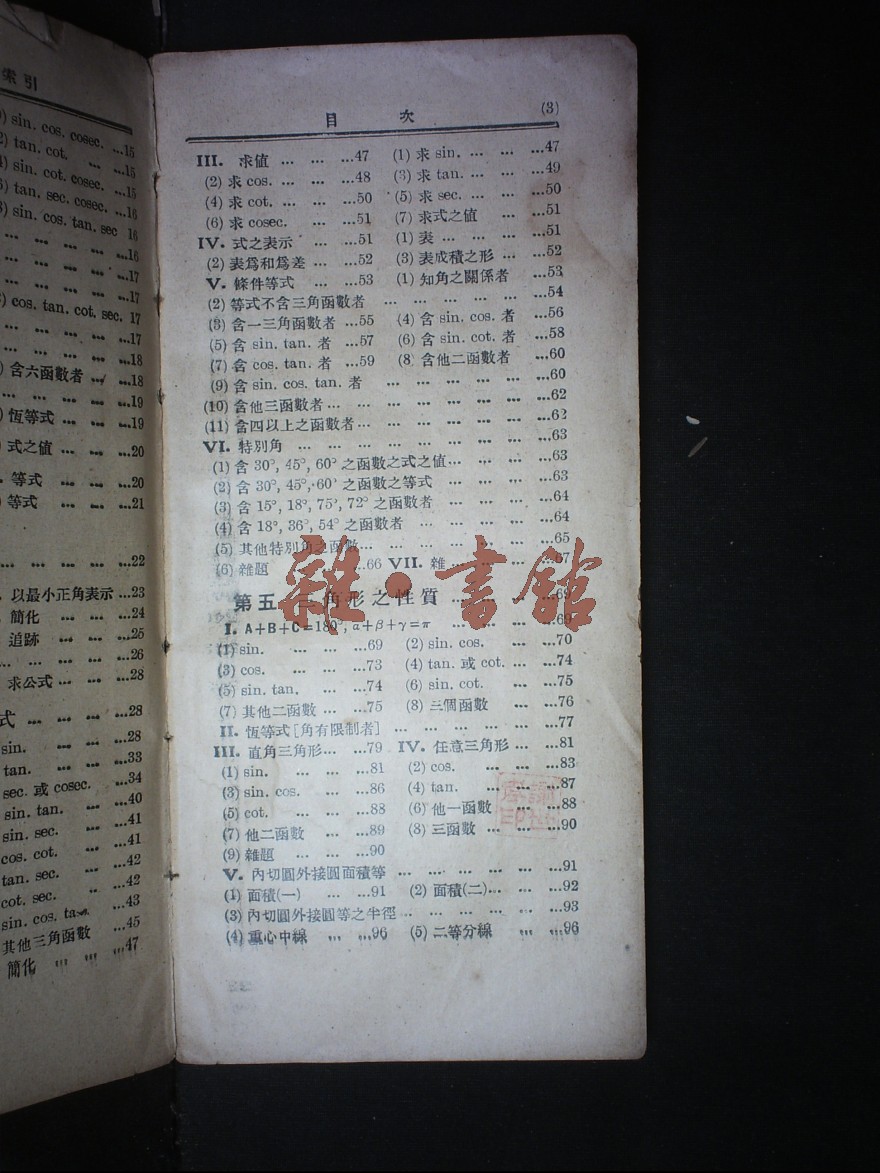 索引
sin. cos. cosec. ...15
tan. cot. ... ...15
sin. cot. cosec. ...15
tan. sec. cosec. ...16
sin. cos. tan. sec 16
... ... ... ... ...16
... ... ... ... ...17
... ... ... ... ...17
cos. tan. cot. sec. 17
... ... ... ...17
... ... ... ... ...18
含六函數者 ... ...18
... ... ... ... ...19
恆等式 ... ... ...19
式之值 ... ... ...20
等式 ... ... ...20
等式 ... ... ...21
... ... ... ... ...22
以最小正角表示 ...23
簡化 ... ... ...24
追跡 ... ... ...25
... ... ... ... ...26
求公式 ... ... ...28
式 ... ... ... ...28
sin. ... ... ...28
tan. ... ... ...33
sec. 或 cosec. ...34
sin. tan. ... ...40
sin. sec. ... ...41
cos. cot. ... ...41
tan. sec. ... ...42
cot. sec. .. ...42
sin. cos. tan. ...43
其他三角函數 ...45
簡化 ... ... ...47
目 次 (3)
III. 求值 ... ... ...47 (1) 求 sin. ... ... ...47
(2) 求 cos. ... ... ...48 (3) 求 tan. ... ... ...49
(4) 求 cot. ... ... ...50 (5) 求 sec. ... ... ...50
(6) 求 cosec. ... ...51 (7) 求式之值 ... ...51
IV. 式之表示 ... ...51 (1) 表 ... ... ... ...51
(2) 表爲和爲差 ... ...52 (3) 表成積之形 ... ...52
V. 條件等式 ... ...53 (1) 知角之關係者 ...53
(2) 等式不含三角函數者 ... ... ... ... ... ...54
(3) 含一三角函數者 ...55 (4) 含 sin. cos. 者 ...56
(5) 含 sin. tan. 者 ...57 (6) 含 sin. cot. 者 ...58
(7) 含 cos. tan. 者 ...59 (8) 含他二函數者 ...60
(9) 含 sin. cos. tan. 者 ... ... ... ... ... ...60
(10) 含他三函數者 ... ... ... ... ... ... ...62
(11) 含四以上之函數者 ... ... ... ... ... ...62
VI. 特別角 ... ... ... ... ... ... ... ... ...63
(1) 含 30°, 45°, 60° 之函數之式之值 ... ... ... ...63
(2) 含 30°, 45°, 60° 之函數之等式 ... ... ... ...63
(3) 含 15°, 18°, 75°, 72° 之函數者 ... ... ... ...64
(4) 含 18°, 36°, 54° 之函數者 ... ... ... ... ...64
(5) 其他特別角之函數 ... ... ... ... ... ...65
(6) 雜題 ...66 VII. 雜 ... ... ... ...67
雜·書館
第五 三角形之性質 ... ... ... ...69
I. A+B+C=180°, α+β+γ=π ... ... ... ...69
(1) sin. ... ... ...69 (2) sin. cos. ... ...70
(3) cos. ... ... ...73 (4) tan. 或 cot. ... ...74
(5) sin. tan. ... ...74 (6) sin. cot. ... ...75
(7) 其他二函數 ... ...75 (8) 三個函數 ... ...76
II. 恆等式[角有限制者] ... ... ... ... ... ...77
III. 直角三角形 ... ...79 IV. 任意三角形 ... ...81
(1) sin. ... ... ...81 (2) cos. ... ... ...83
(3) sin. cos. ... ...86 (4) tan. ... ... ...87
(5) cot. ... ... ...88 (6) 他一函數 ... ...88
(7) 他二函數 ... ...89 (8) 三函數 ... ... ...90
(9) 雜題 ... ... ...90
V. 內切圓外接圓面積等 ... ... ... ... ... ...91
(1) 面積(一) ... ...91 (2) 面積(二) ... ... ...92
(3) 內切圓外接圓等之半徑 ... ... ... ... ...93
(4) 重心中線 ... ...96 (5) 二等分線 ... ...96